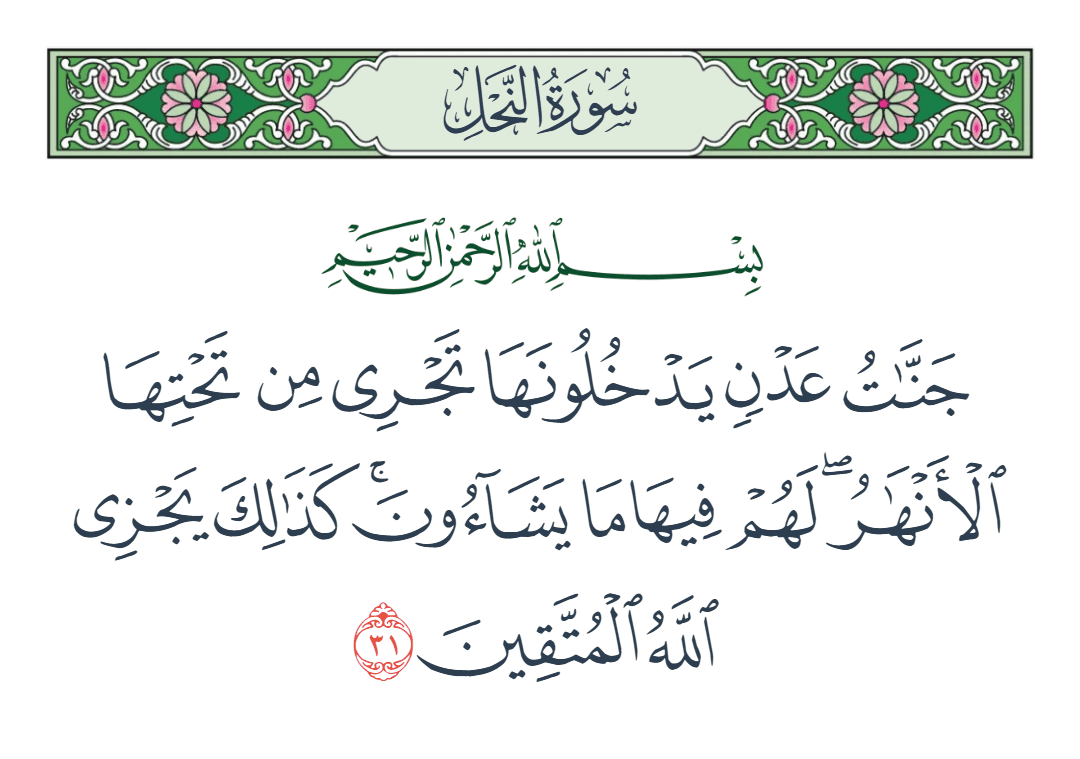 سُورَةُ النَّحْلِ
بِسْمِ ٱللَّهِ ٱلرَّحْمَٰنِ ٱلرَّحِيمِ
جَنَّٰتُ عَدْنٍ يَدْخُلُونَهَا تَجْرِى مِن تَحْتِهَا
ٱلْأَنْهَٰرُ ۖ لَهُمْ فِيهَا مَا يَشَآءُونَ ۚ كَذَٰلِكَ يَجْزِى
ٱللَّهُ ٱلْمُتَّقِينَ ٣١